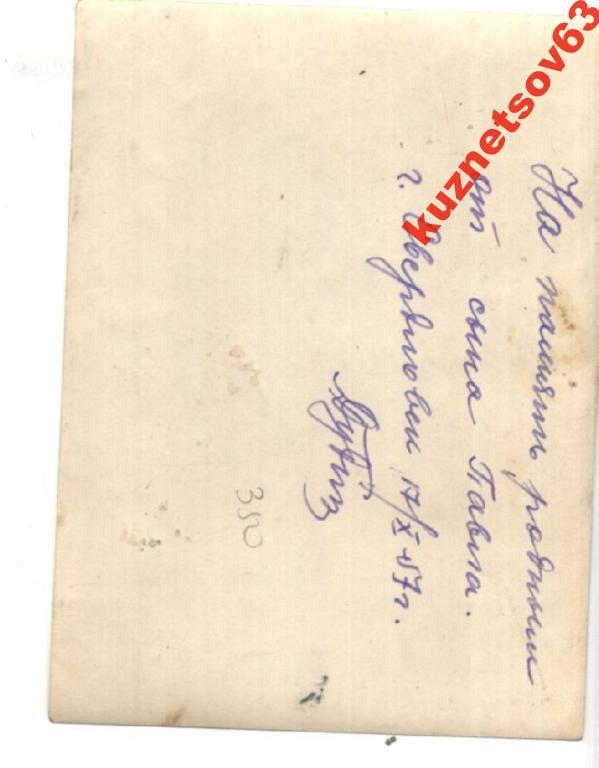 На память родным
от сына Павла.
г. Свердловск 17/X 57 г.
350
kuznetsov63